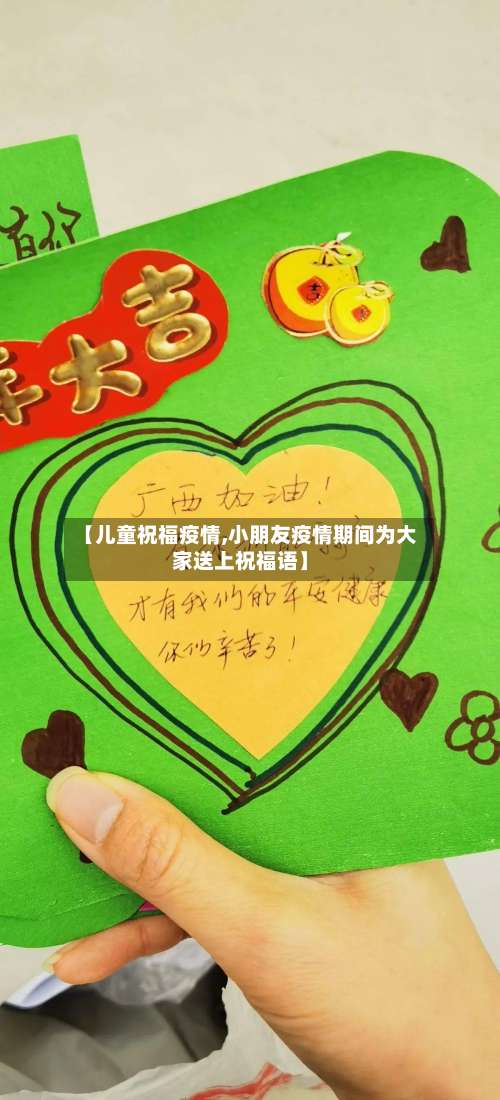 年大吉
吉
广西加油！
【儿童祝福疫情,小朋友疫情期间为大
家送上祝福语】
才有我们的平安健康
你们辛苦了！